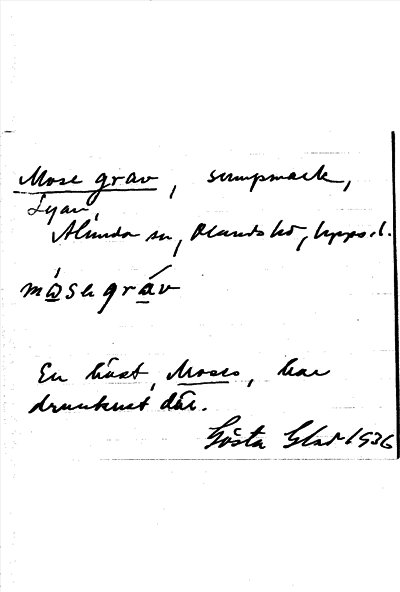 Mose grav, sumpmark,
Lyan,
Alunda sn, Olands hd, Upps.l.
måsegrav
En häst, Moses, har
drunknat där.
Gösta Glad 1936